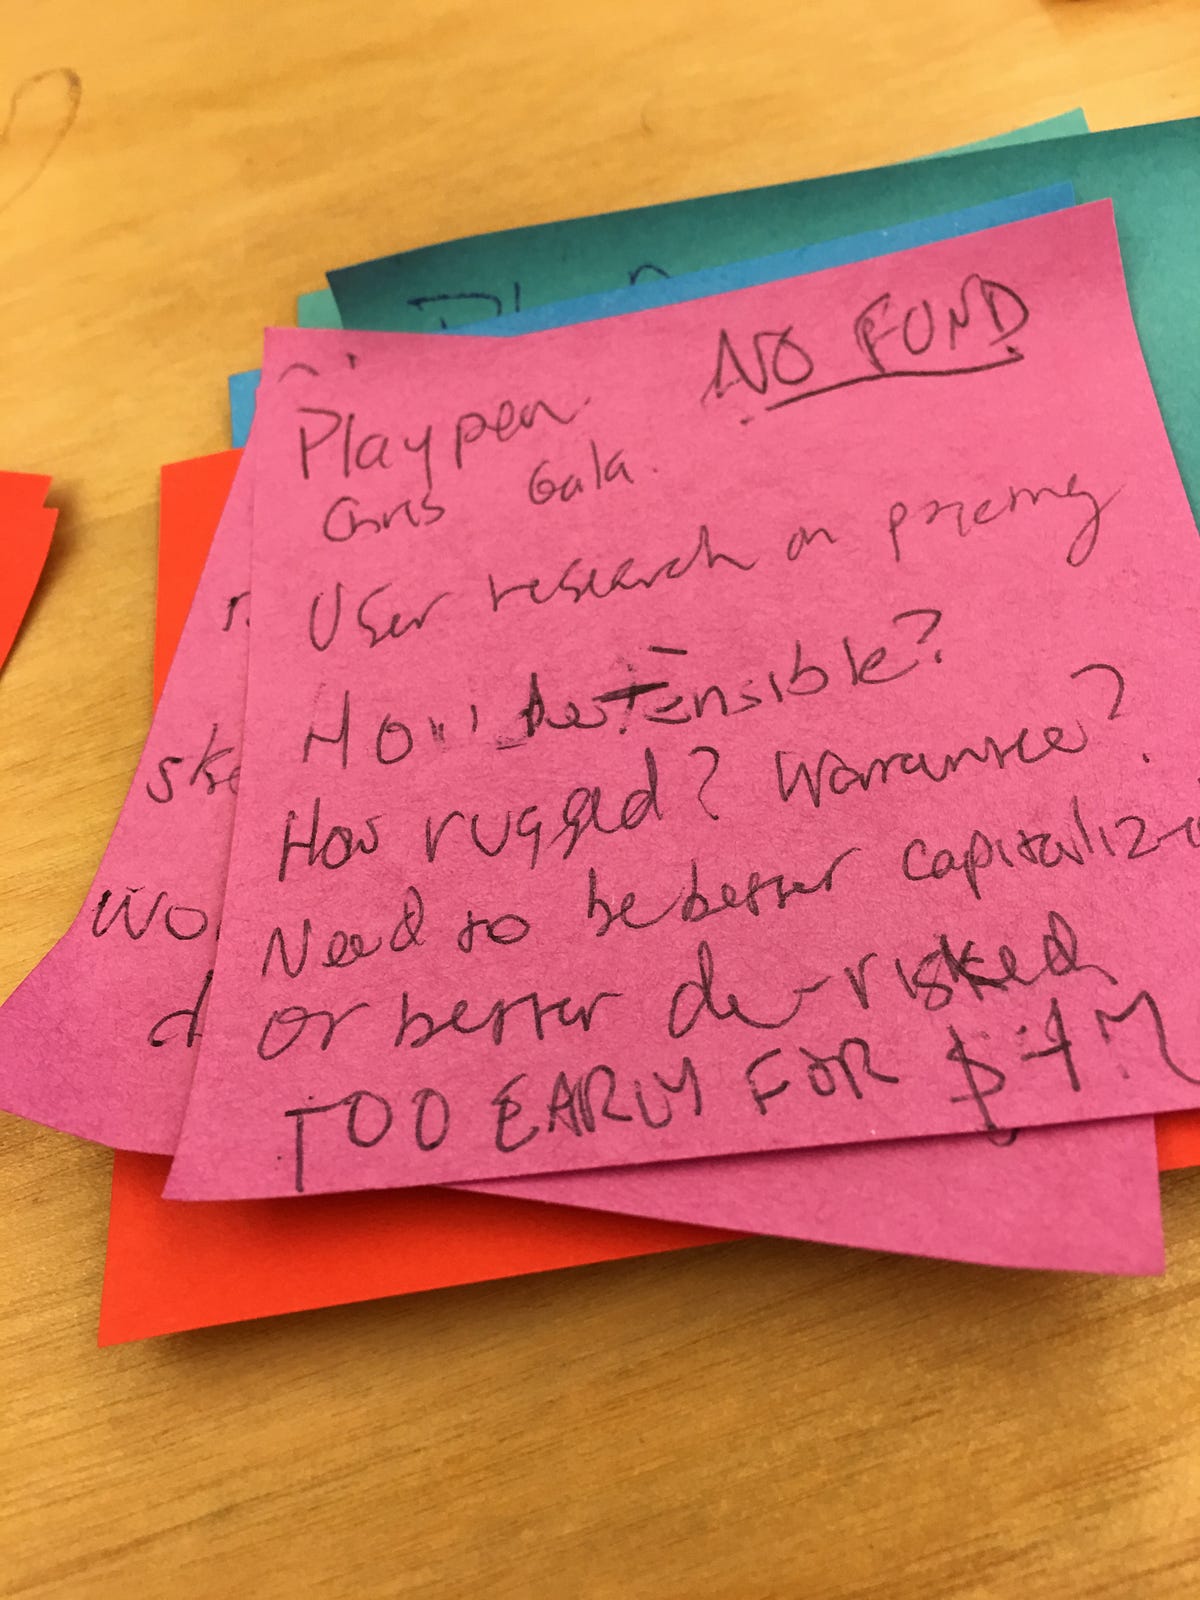 NO FUND
Playpen
Chris Gala.
User research on pricing
How defensible?
How rugged? Warrantee?
Need to be better
or better de-risked
TOO EARLY FOR $4M
wo
d